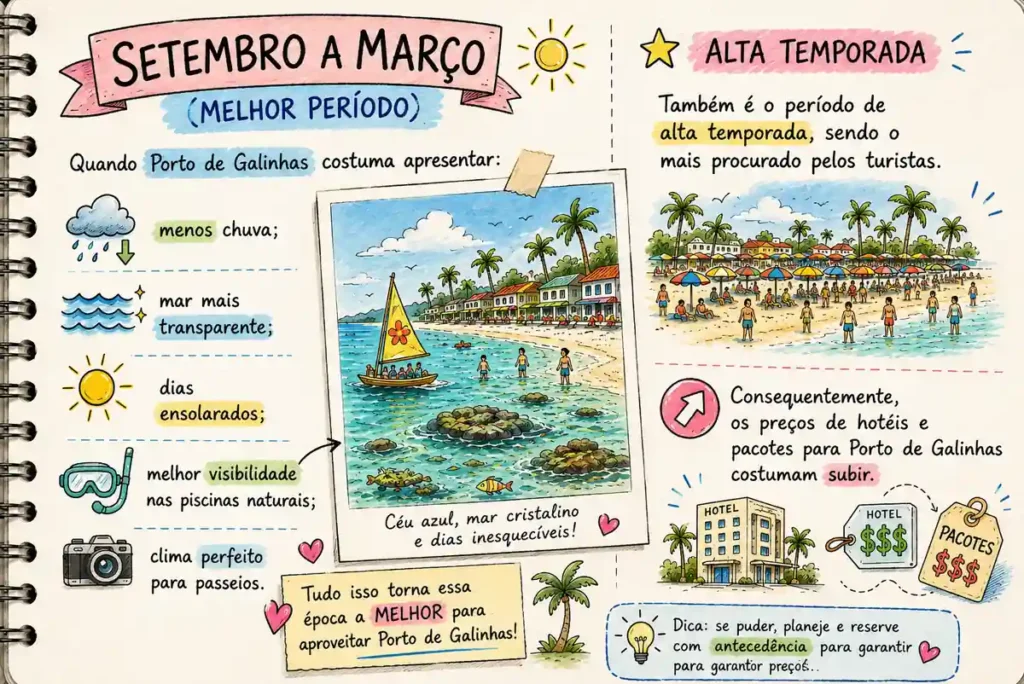 SETEMBRO A MARÇO
(MELHOR PERÍODO)
Quando Porto de Galinhas costuma apresentar:
menos chuva;
mar mais
transparente;
dias
ensolarados;
melhor visibilidade
nas piscinas naturais;
clima perfeito
para passeios.
Céu azul, mar cristalino
e dias inesquecíveis!
Tudo isso torna essa
época a MELHOR para
aproveitar Porto de Galinhas!
ALTA TEMPORADA
Também é o período de
alta temporada, sendo o
mais procurado pelos turistas.
Consequentemente,
os preços de hotéis e
pacotes para Porto de Galinhas
costumam subir.
HOTEL
HOTEL
$$$
PACOTES
$$$
Dica: se puder, planeje e reserve
com antecedência para garantir
para garantir preços...